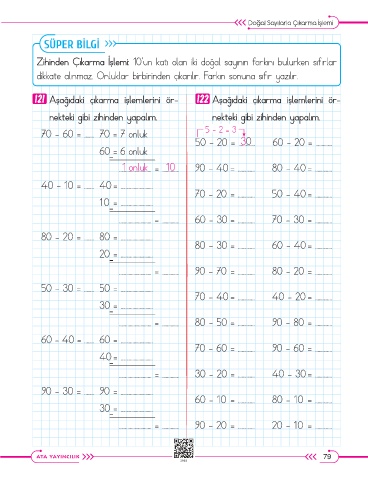 Doğal Sayılarla Çıkarma İşlemi
SÜPER BİLGİ
Zihinden Çıkarma İşlemi: 10'un katı olan iki doğal sayının farkını bulurken sıfırlar
dikkate alınmaz. Onluklar birbirinden çıkarılır. Farkın sonuna sıfır yazılır.
121 Aşağıdaki çıkarma işlemlerini ör-
nekteki gibi zihinden yapalım.
70 - 60 = ...... 70 = 7 onluk
60 = 6 onluk
1 onluk = 10
40 - 10 = ...... 40 = ............
10 = ............
............ = ......
80 - 20 = ...... 80 = ............
20 = ............
............ = ......
50 - 30 = ...... 50 = ............
30 = ............
............ = ......
60 - 40 = ...... 60 = ............
40 = ............
............ = ......
90 - 30 = ...... 90 = ............
30 = ............
............ = ......
122 Aşağıdaki çıkarma işlemlerini ör-
nekteki gibi zihinden yapalım.
5 - 2 = 3
50 - 20 = 30 60 - 20 = ......
90 - 40 = ...... 80 - 40 = ......
70 - 20 = ...... 50 - 40 = ......
60 - 30 = ...... 70 - 30 = ......
80 - 30 = ...... 60 - 40 = ......
90 - 70 = ...... 80 - 20 = ......
70 - 40 = ...... 40 - 20 = ......
80 - 50 = ...... 90 - 80 = ......
70 - 60 = ...... 90 - 60 = ......
30 - 20 = ...... 40 - 30 = ......
60 - 10 = ...... 80 - 10 = ......
90 - 20 = ...... 20 - 10 = ......
ATA YAYINCILIK
79